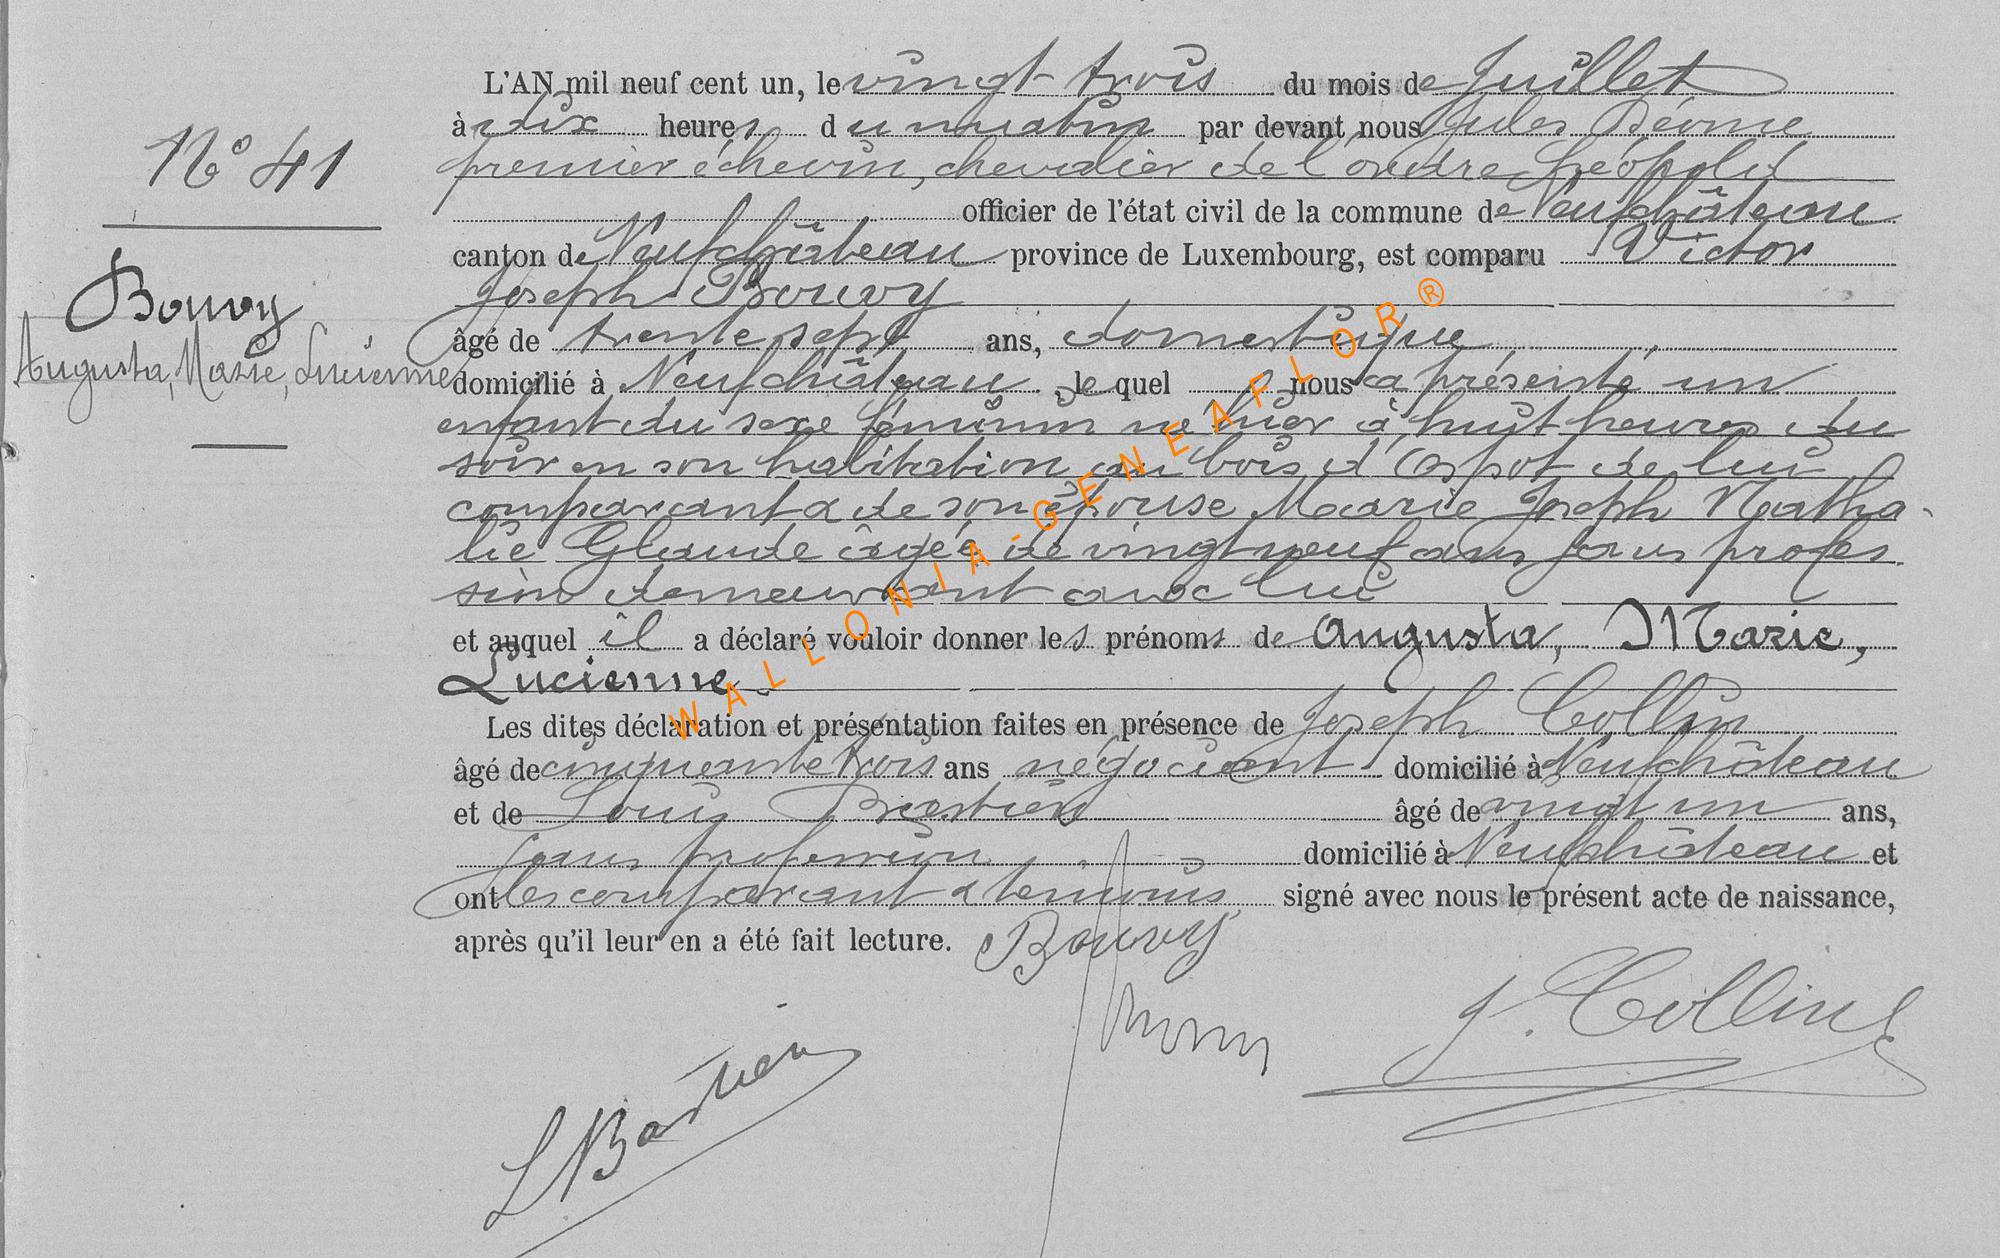 N° 41
Bouvy
Augusta, Marie, Lucienne
L'AN mil neuf cent un, le vingt trois du mois de Juillet
à dix heures du matin par devant nous Jules
premier échevin, chevalier de l'ordre Léopold
officier de l'état civil de la commune de Neufchâteau
canton de Neufchâteau province de Luxembourg, est comparu Victor
Joseph Bouvy
âgé de trente sept ans, domestique,
domicilié à Neufchâteau, le quel nous a présenté un
enfant du sexe féminin né hier à huit heures du
soir en son habitation au bois d'Ospot de lui
comparant & de son épouse Marie Joseph Natha-
lie Glaude âgée de vingt neuf ans sans profes
sion demeurant avec lui
et auquel il a déclaré vouloir donner les prénoms de Augusta, Marie,
Lucienne.
Les dites déclaration et présentation faites en présence de Joseph Collin
âgé de cinquante trois ans négociant domicilié à Neufchâteau
et de Louis Bastien âgé de vingt un ans,
sans profession domicilié à Neufchâteau et
ont les comparant & témoins signé avec nous le présent acte de naissance,
après qu'il leur en a été fait lecture. Bouvy
J. Collin
L Bastien
WALLONIA-GENEAFLOR®